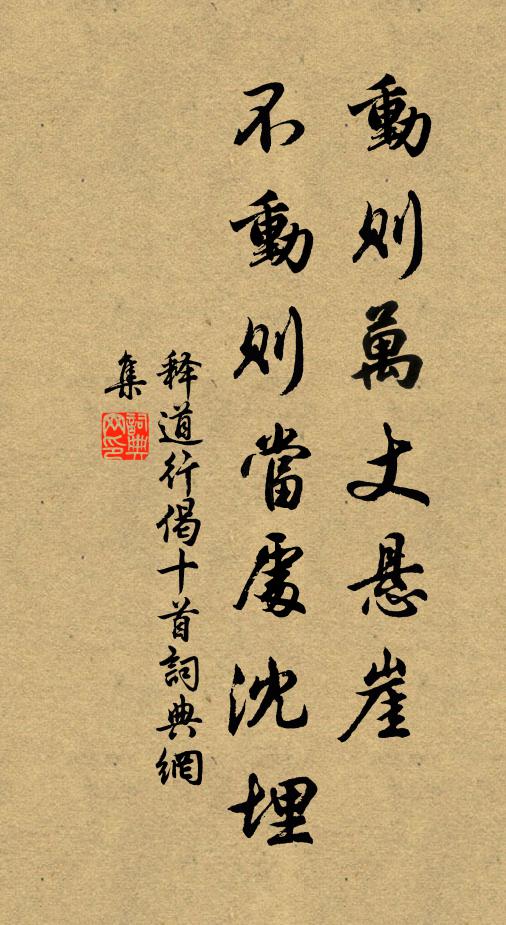 動則萬丈悬崖
不動則當處沈埋
释道行偈十首詞典網
集
詞典
网印